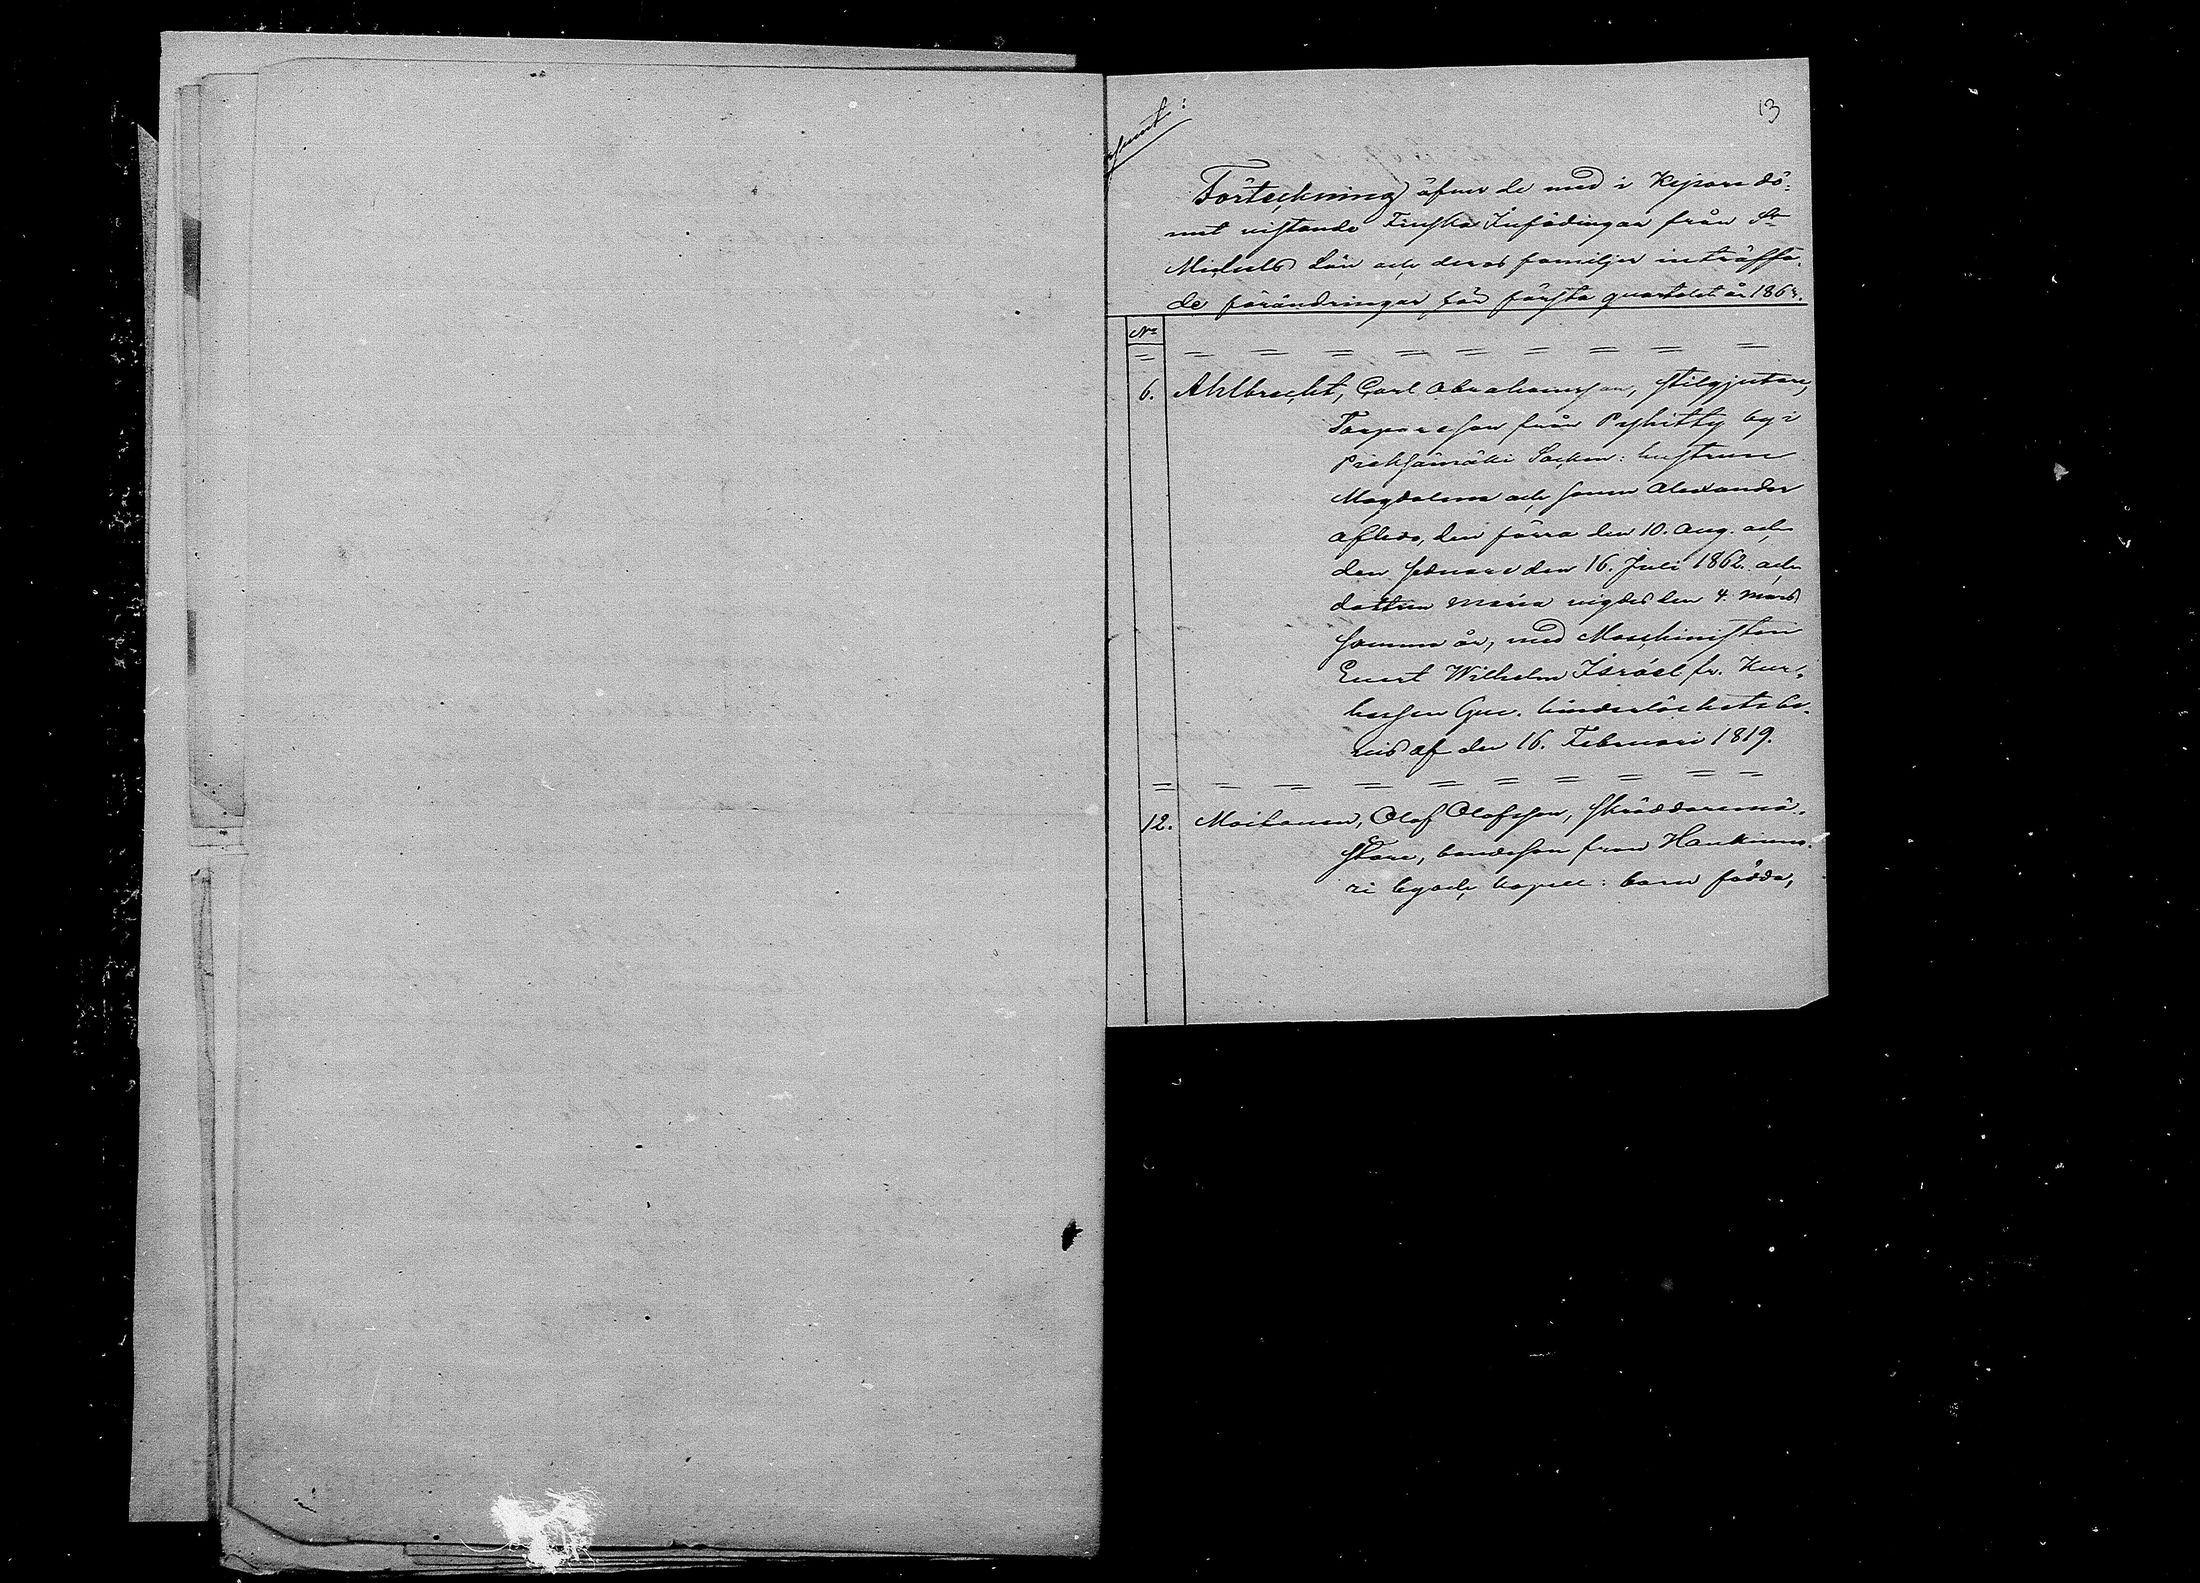 13
Förteckning öfver de med i Kejsaredö-
met vistande Finska Infödingar från St
Michels Län och deras familjer inträffa-
de förändringar för första quartalet år 1863.
No
6. Ahlbrecht, Carl Abrahamsson, stilgjutare,
Torpareson från Pyhitty by i
Pieksämäki Socken: hustrun
Magdalena och sonen Alexander
afledo, den förra den 10. Aug. och
den sednare den 16. Juli 1862. och
dottren Maria vigdes den 4. Mars
samma år, med Maschinisten
Evert Wilhelm Israel fr. Kur-
hessen Guv. hinderlöshetsbe-
vis af den 16. Februari 1819.
12. Moilanen, Olof Olofsson, skräddaremä-
stare, bondeson från Haukivuo-
ri by och kapell: barn födda,